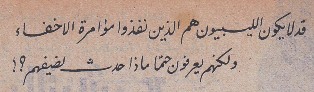 قد لا يكون الليبيون هم الذين نفذوا مؤامرة الاخفاء
ولكنهم يعرفون حتما ماذا حدث لضيفهم ؟!